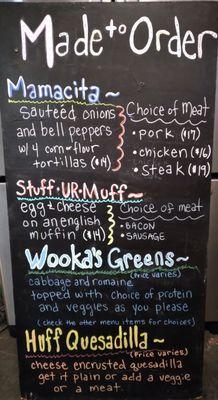 Made to Order
Mamacita ~
sauteed onions
and bell peppers
w/ 4 corn or flour
tortillas ($14)
Choice of Meat
• pork ($17)
• chicken ($16)
• steak ($19)
Stuff-UR-Muff ~
egg & cheese
on an english
muffin ($14)
Choice of meat
• BACON
• SAUSAGE
Wooka's Greens ~
(Price varies)
cabbage and romaine
topped with choice of protein
and veggies as you please
(check the other menu items for choices)
Huff Quesadilla ~
(Price varies)
cheese encrusted quesadilla
get it plain or add a veggie
or a meat.